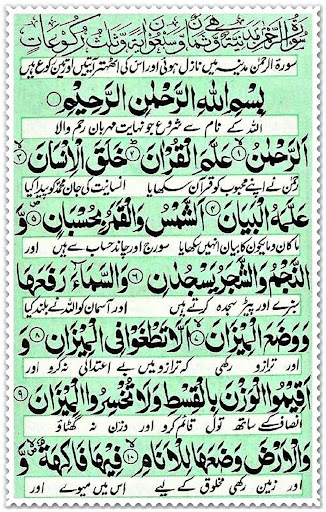 سُورَةُ الرَّحْمٰنِ مَدَنِيَّةٌ وَّهِيَ ثَمَانٌ وَّسَبْعُوْنَ اٰيَةً وَّثَلٰثُ رُكُوْعَاتٍ
سورۃ الرحمٰن مدینہ میں نازل ہوئی اور اس کی اٹھہتر آیتیں اور تین رکوع ہیں
بِسْمِ اللّٰهِ الرَّحْمٰنِ الرَّحِيْمِ
اللہ کے نام سے شروع جو نہایت مہربان رحم والا
اَلرَّحْمٰنُ ۙ۝۱ عَلَّمَ الْقُرْاٰنَ ؕ۝۲ خَلَقَ الْاِنْسَانَ ۙ۝۳
رحمٰن نے اپنے محبوب کو قرآن سکھایا انسانیت کی جان محمد کو پیدا کیا
عَلَّمَهُ الْبَيَانَ ۝۴ اَلشَّمْسُ وَالْقَمَرُ بِحُسْبَانٍ ۪۝۵ وَّ
ما کان وما یکون کا بیان انہیں سکھایا سورج اور چاند حساب سے ہیں اور
النَّجْمُ وَالشَّجَرُ يَسْجُدٰنِ ۝۶ وَالسَّمَآءَ رَفَعَهَا
سبزے اور پیڑ سجدہ کرتے ہیں اور آسمان کو اللہ نے بلند کیا
وَوَضَعَ الْمِيْزَانَ ۙ۝۷ اَلَّا تَطْغَوْا فِی الْمِيْزَانِ ۝۸ وَ
اور ترازو رکھی کہ ترازو میں بے اعتدالی نہ کرو اور
اَقِيْمُوا الْوَزْنَ بِالْقِسْطِ وَلَا تُخْسِرُوا الْمِيْزَانَ ۝۹
انصاف کے ساتھ تول قائم کرو اور وزن نہ گھٹاؤ
وَالْاَرْضَ وَضَعَهَا لِلْاَنَامِ ۙ۝۱۰ فِيْهَا فَاكِهَةٌ ۪ۙ وَّ
اور زمین رکھی مخلوق کے لیے اس میں میوے اور